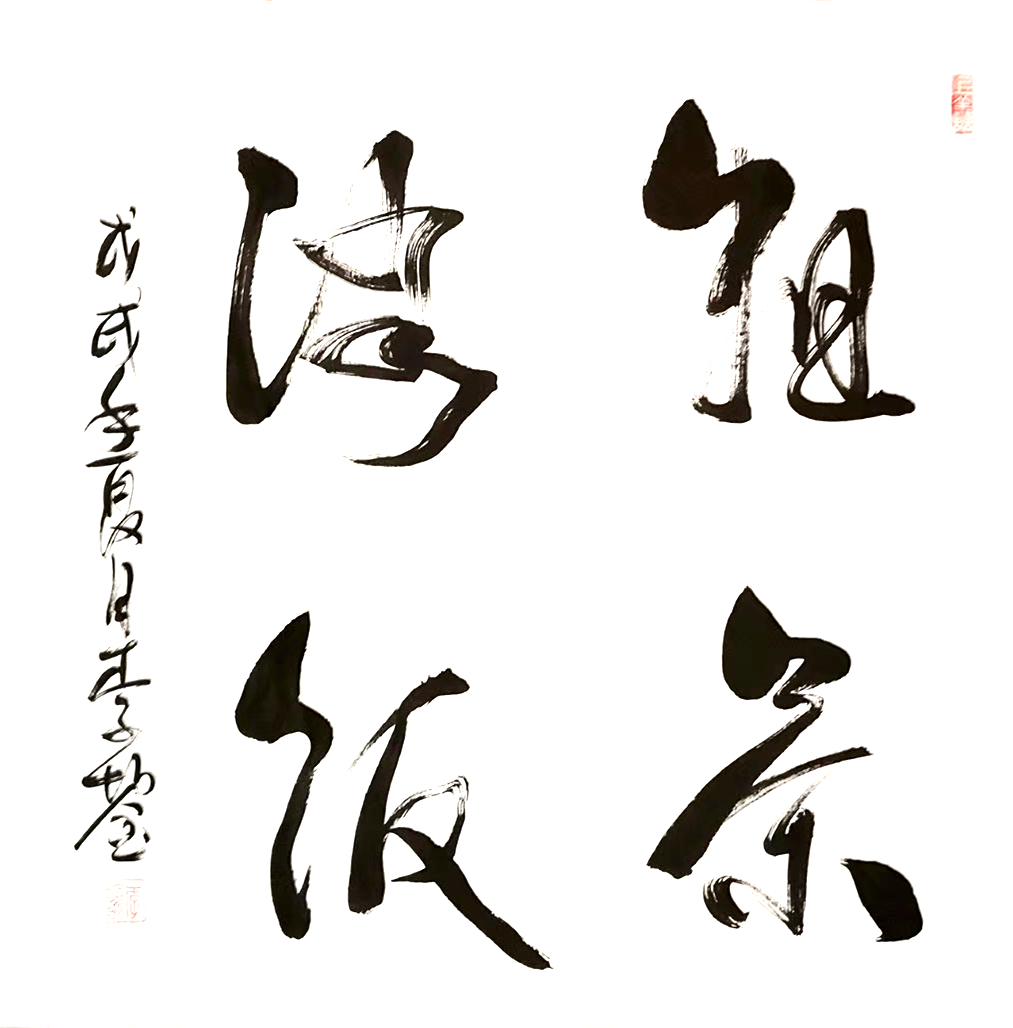 粗茶
淡饭
戊戌年夏月李